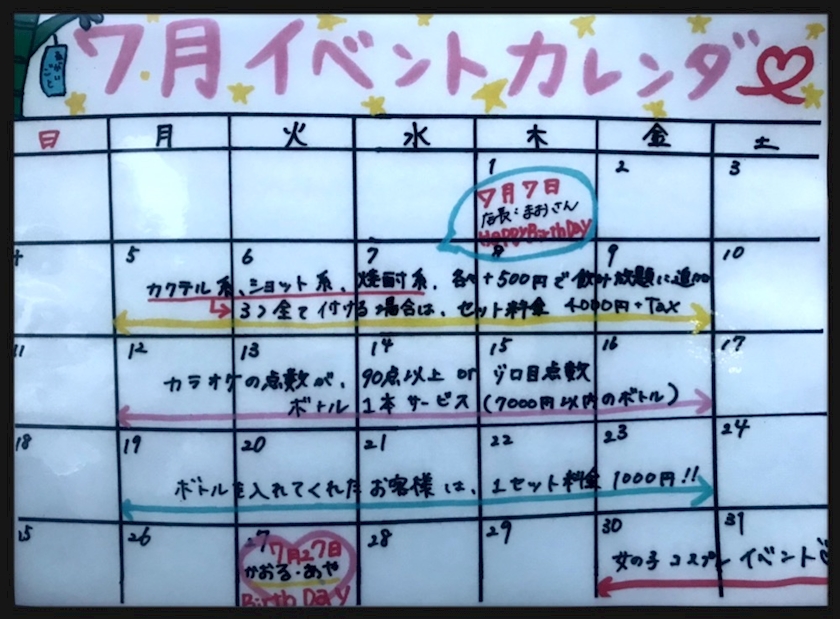 7月イベントカレンダー
日 月 火 水 木 金 土
1 2 3
7月7日
店長:まおさん
Happy Birth Day
4 5 6 7 8 9 10
カクテル系、ショット系、焼酎系、各々+500円で飲み放題に追加
3つ全て付ける場合は、セット料金 4000円+Tax
11 12 13 14 15 16 17
カラオケの点数が、90点以上 or ゾロ目点数
ボトル 1本サービス(7000円以内のボトル)
18 19 20 21 22 23 24
ボトルを入れてくれたお客様は、1セット料金 1000円!!
25 26 27 28 29 30 31
7月27日
かおる・あや
Birth Day
女の子コスプレイベント♡